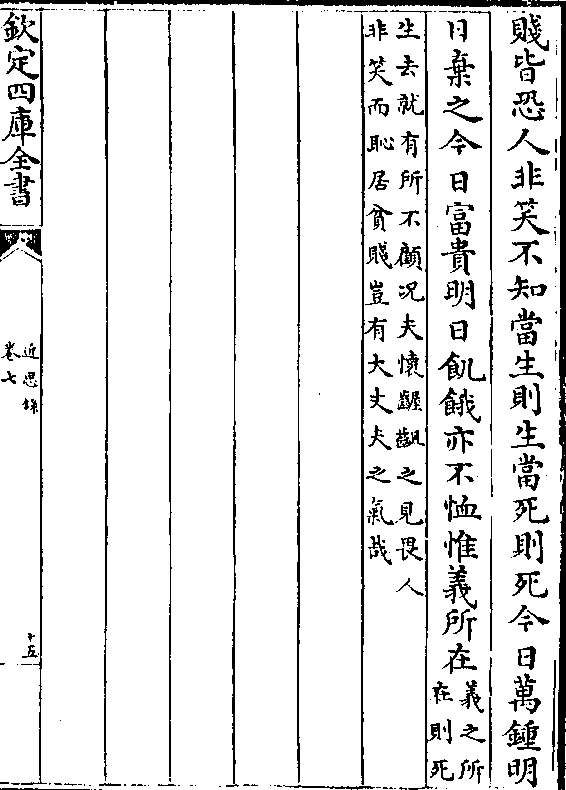 賤皆恐人非笑不知當生則生當死則死今日萬鍾明
日棄之今日富貴明日飢餓亦不恤惟義所在
義之所
在則死
生去就有所不顧况夫懷齷齪之見畏人
非笑而恥居貧賤豈有大丈夫之氣哉
欽定四庫全書
近思録
卷七
十五